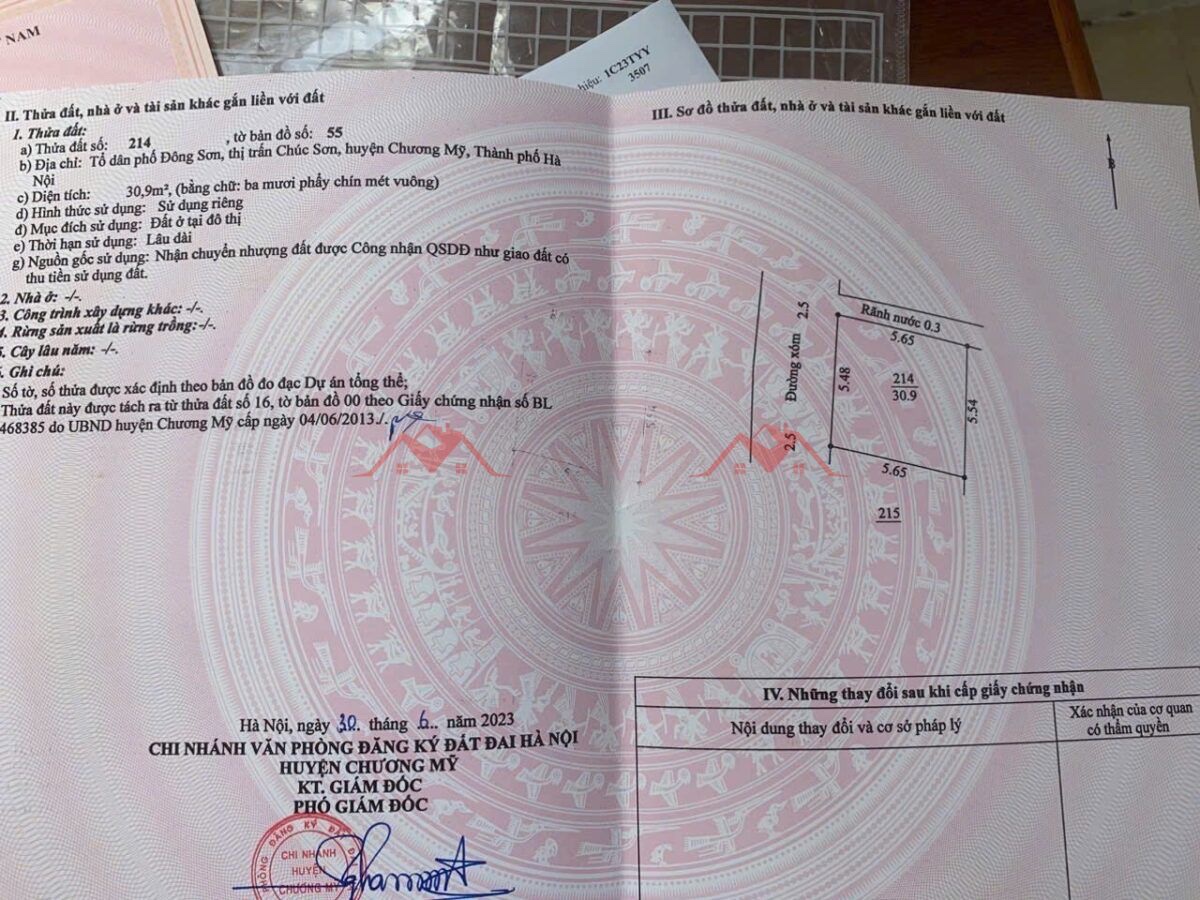 T NAM
hiệu: 1C23TYY
3507
II. Thửa đất, nhà ở và tài sản khác gắn liền với đất
1. Thửa đất:
a) Thửa đất số: 214 , tờ bản đồ số: 55
b) Địa chỉ: Tổ dân phố Đông Sơn, thị trấn Chúc Sơn, huyện Chương Mỹ, Thành phố Hà
Nội
c) Diện tích: 30,9m², (bằng chữ: ba mươi phẩy chín mét vuông)
d) Hình thức sử dụng: Sử dụng riêng
đ) Mục đích sử dụng: Đất ở tại đô thị
e) Thời hạn sử dụng: Lâu dài
g) Nguồn gốc sử dụng: Nhận chuyển nhượng đất được Công nhận QSDĐ như giao đất có
thu tiền sử dụng đất.
2. Nhà ở: -/-.
3. Công trình xây dựng khác: -/-.
4. Rừng sản xuất là rừng trồng:-/-.
5. Cây lâu năm: -/-.
. Ghi chú:
Số tờ, số thửa được xác định theo bản đồ đo đạc Dự án tổng thể;
Thửa đất này được tách ra từ thửa đất số 16, tờ bản đồ 00 theo Giấy chứng nhận số BL
468385 do UBND huyện Chương Mỹ cấp ngày 04/06/2013./.
Hà Nội, ngày 30. tháng 6.. năm 2023
CHI NHÁNH VĂN PHÒNG ĐĂNG KÝ ĐẤT ĐAI HÀ NỘI
HUYỆN CHƯƠNG MỸ
KT. GIÁM ĐỐC
PHÓ GIÁM ĐỐC
PHÒNG ĐĂNG KÝ ĐẤT Đ
CHI NHÁNH
HUYỆN
CHƯƠNG MỸ
III. Sơ đồ thửa đất, nhà ở và tài sản khác gắn liền với đất
B
Rãnh nước 0.3
5.65
2.5
Đường xóm
2.5
5.48
214
30.9
5.54
5.65
215
IV. Những thay đổi sau khi cấp giấy chứng nhận
Nội dung thay đổi và cơ sở pháp lý
Xác nhận của cơ quan
có thẩm quyền